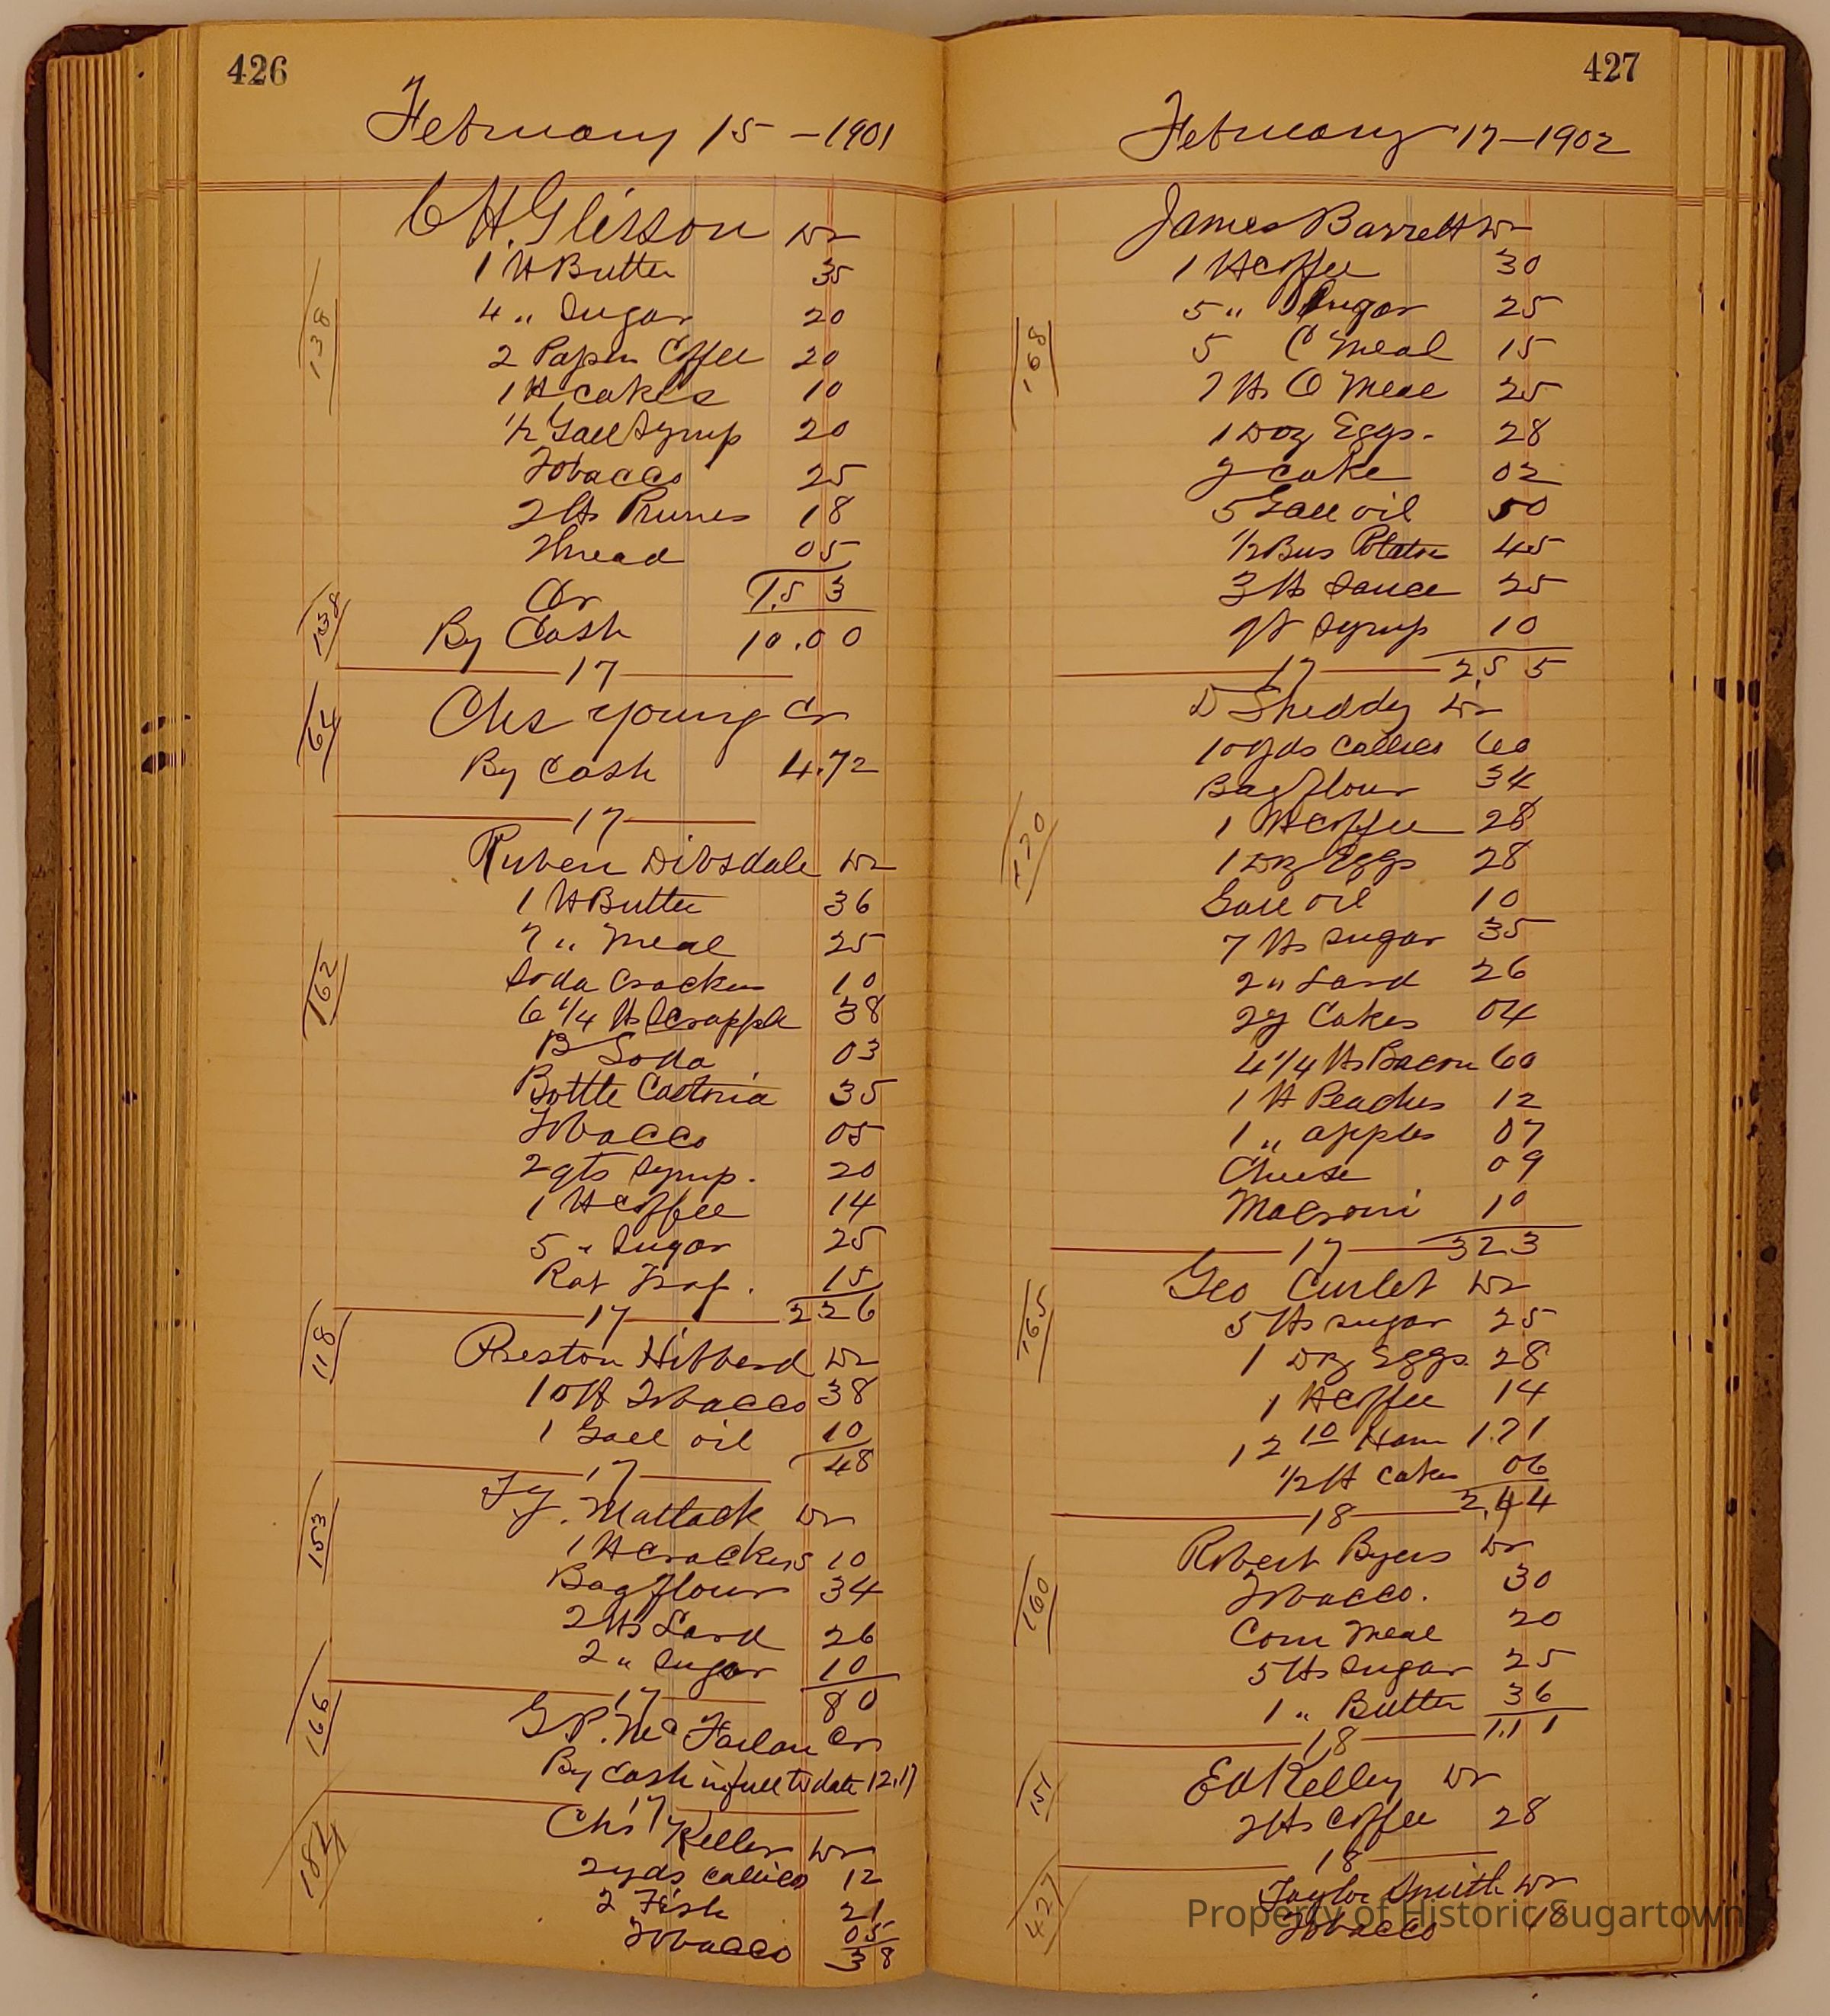 426
February 15 - 1901
C H. Glisson Dr
1 lb Butter 35
4 " Sugar 20
2 Paper Coffee 20
1 lb cakes 10
1/2 Gall Syrup 20
Tobacco 25
2 lbs Prunes 18
Thread 05
Cr 1.53
138
By Cash 10.00
138
17
Chs Young Cr
By Cash 4.72
64
17
Ruben Dibsdale Dr
1 lb Butter 36
7 " meal 25
Soda Crackers 10
6 1/4 lbs Scrapple 38
B Soda 03
Bottle Castoria 35
Tobacco 05
2 qts Syrup. 20
1 lb Coffee 14
5 " Sugar 25
Rat Trap. 15
162
17 2 26
Preston Hibberd Dr
10 lb Tobacco 38
1 Gall oil 10
48
118
17
Mattack Dr
1 lb Crackers 10
Bag flour 34
2 lbs Lard 26
2 " Sugar 10
153
17 80
G.P. McFarlan Cr
By Cash in full to date 12.17
166
17
Chs Keller Dr
2 yds callico 12
2 Fish 21
Tobacco 05
38
184
427
February 17-1902
James Barrett Dr
1 lb coffee 30
5 " Sugar 25
5 C meal 15
7 lbs O Meal 25
1 Doz Eggs. 28
y cake 02
5 Gall oil 50
1/2 Bus Potatoe 45
3 lb Sauce 25
qt Syrup 10
168
17 2.55
D Sheddy Dr
10 yds Callico 60
Bag flour 34
1 lb coffee 28
1 Dz Eggs 28
Gall oil 10
7 lbs Sugar 35
2 " Lard 26
2 y Cakes 04
4 1/4 lbs Bacon 60
1 lb Peaches 12
1 " apples 07
Cheese 09
Macroni 10
170
17 3 23
Geo Curlet Dr
5 lbs Sugar 25
1 Dz Eggs. 28
1 lb Coffee 14
12 10 Ham 1.71
1/2 lb Cakes 06
165
18 2.44
Robert Byers Dr
Tobacco. 30
Corn Meal 20
5 lbs Sugar 25
1 " Butter 36
160
18 1.11
Ed Kelley Dr
2 lbs Coffee 28
151
18
Taylor Smith Dr
Tobacco 18
427
Property of Historic Sugartown